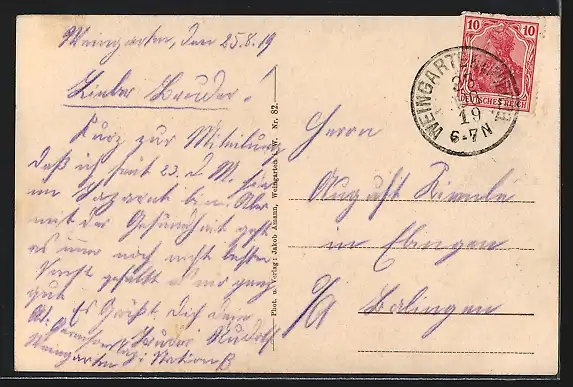 Weingarten, den 25.8.19
Lieber Bruder!
Kurz zur Mitteilung
daß ich seit 23. d. M. hier
im Lazarett bin. Aber
mit der Gesundheit geht
es immer noch nicht besser
Sonst gefällt es mir ganz
gut.
Es Grüßt Dich dein
Bruder Rudolf
Weingarten Station B
Phot. u. Verlag: Jakob Amann, Weingarten i. W. Nr. 82.
10 10
DEUTSCHES REICH
WEINGARTEN
19
6-7N
Herrn
August
in Ebingen
O/A Balingen